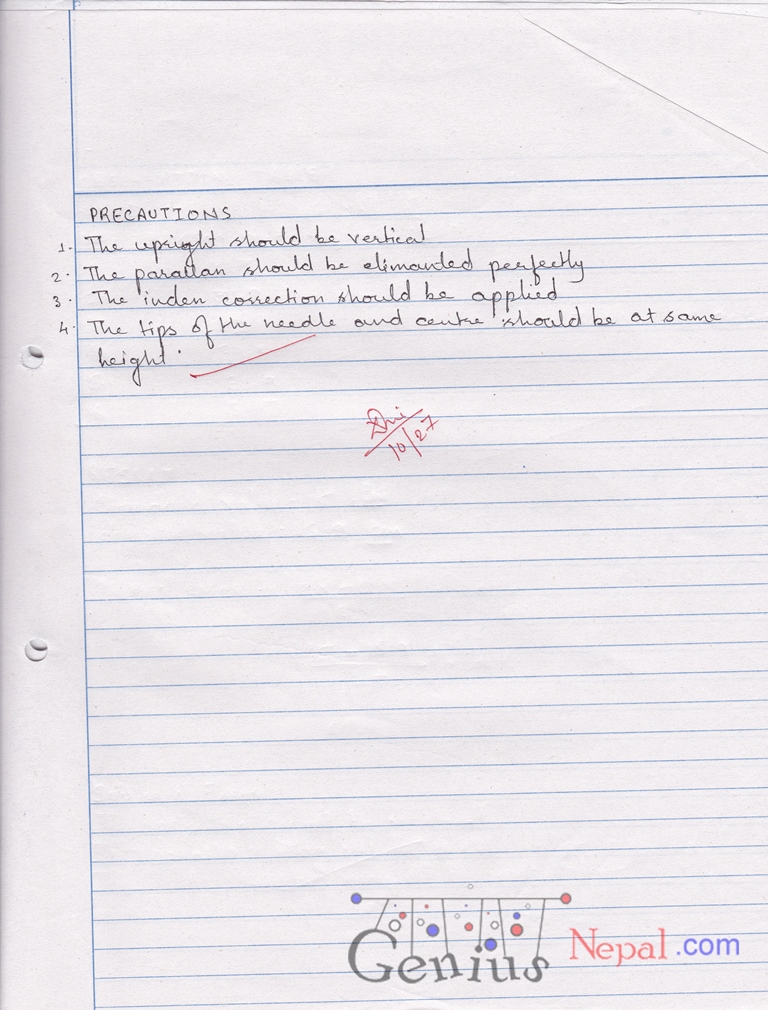 PRECAUTIONS
1. The upright should be vertical
2. The parallan should be elimanted perfectly
3. The inden correction should be applied
4. The tips of the needle and centre should be at same
height.
10/27
Genius Nepal.com